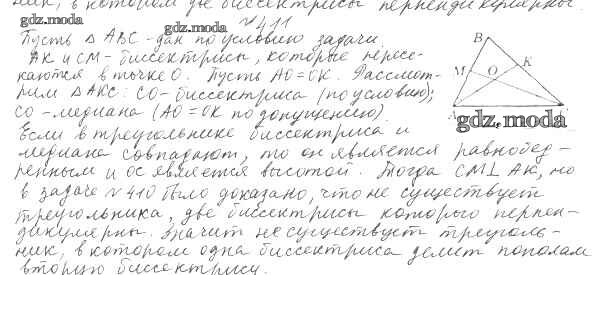 ник, в котором две биссектрисы перпендикулярны.
gdz.moda
gdz.moda
№ 411
Пусть △ ABC - дан по условию задачи,
AK и CM - биссектрисы, которые пересе-
каются в точке O. Пусть AO = OK. Рассмот-
рим △ AKC: CO - биссектриса (по условию);
CO - медиана (AO = OK по допущению)
Если в треугольнике биссектриса и
медиана совпадают, то он является равнобед-
ренным и ос является высотой. Тогда CM⊥AK, но
в задаче №410 было доказано, что не существует
треугольника, две биссектрисы которого перпен-
дикулярны. Значит не существует треуголь-
ник, в котором одна биссектриса делит пополам
вторую биссектрису.
B
M
K
O
A
gdz.moda